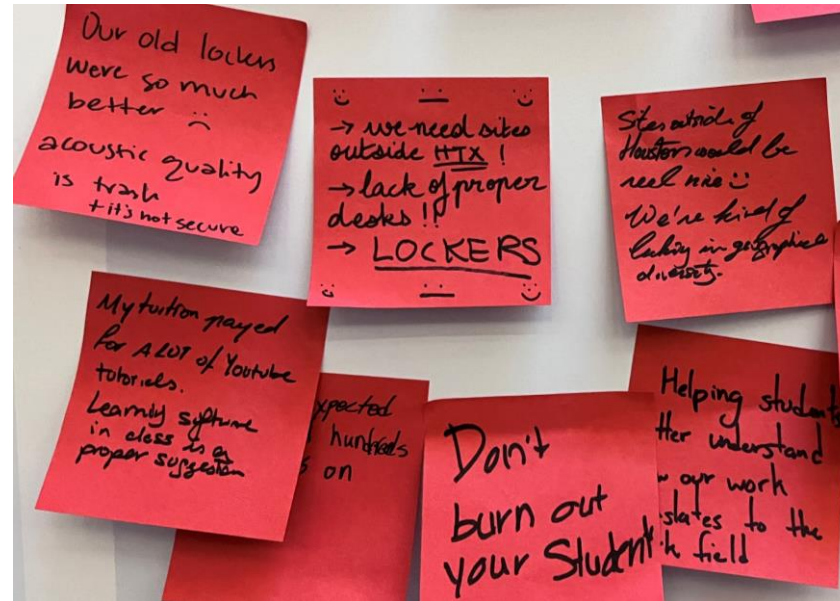 Our old lockers
were so much
better
acoustic quality
is trash
+ it's not secure
→ we need sites
outside HTX !
→ lack of proper
desks !!
→ LOCKERS
Sites outside of
Houston would be
reel nice
We're kind of
lacking in geographical
diversity.
My tuition payed
for A LOT of Youtube
tutorials.
Learning software
in class is a
proper suggestion
xpected
hundreds
on
Don't
burn out
your Student
Helping students
tter understand
our work
slates to the
k field